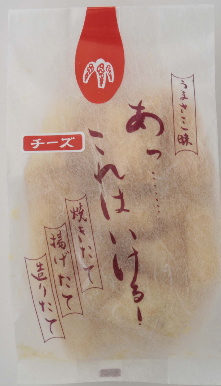 うまさここ味
あっ……
これはいける!
チーズ
焼きたて
揚げたて
造りたて